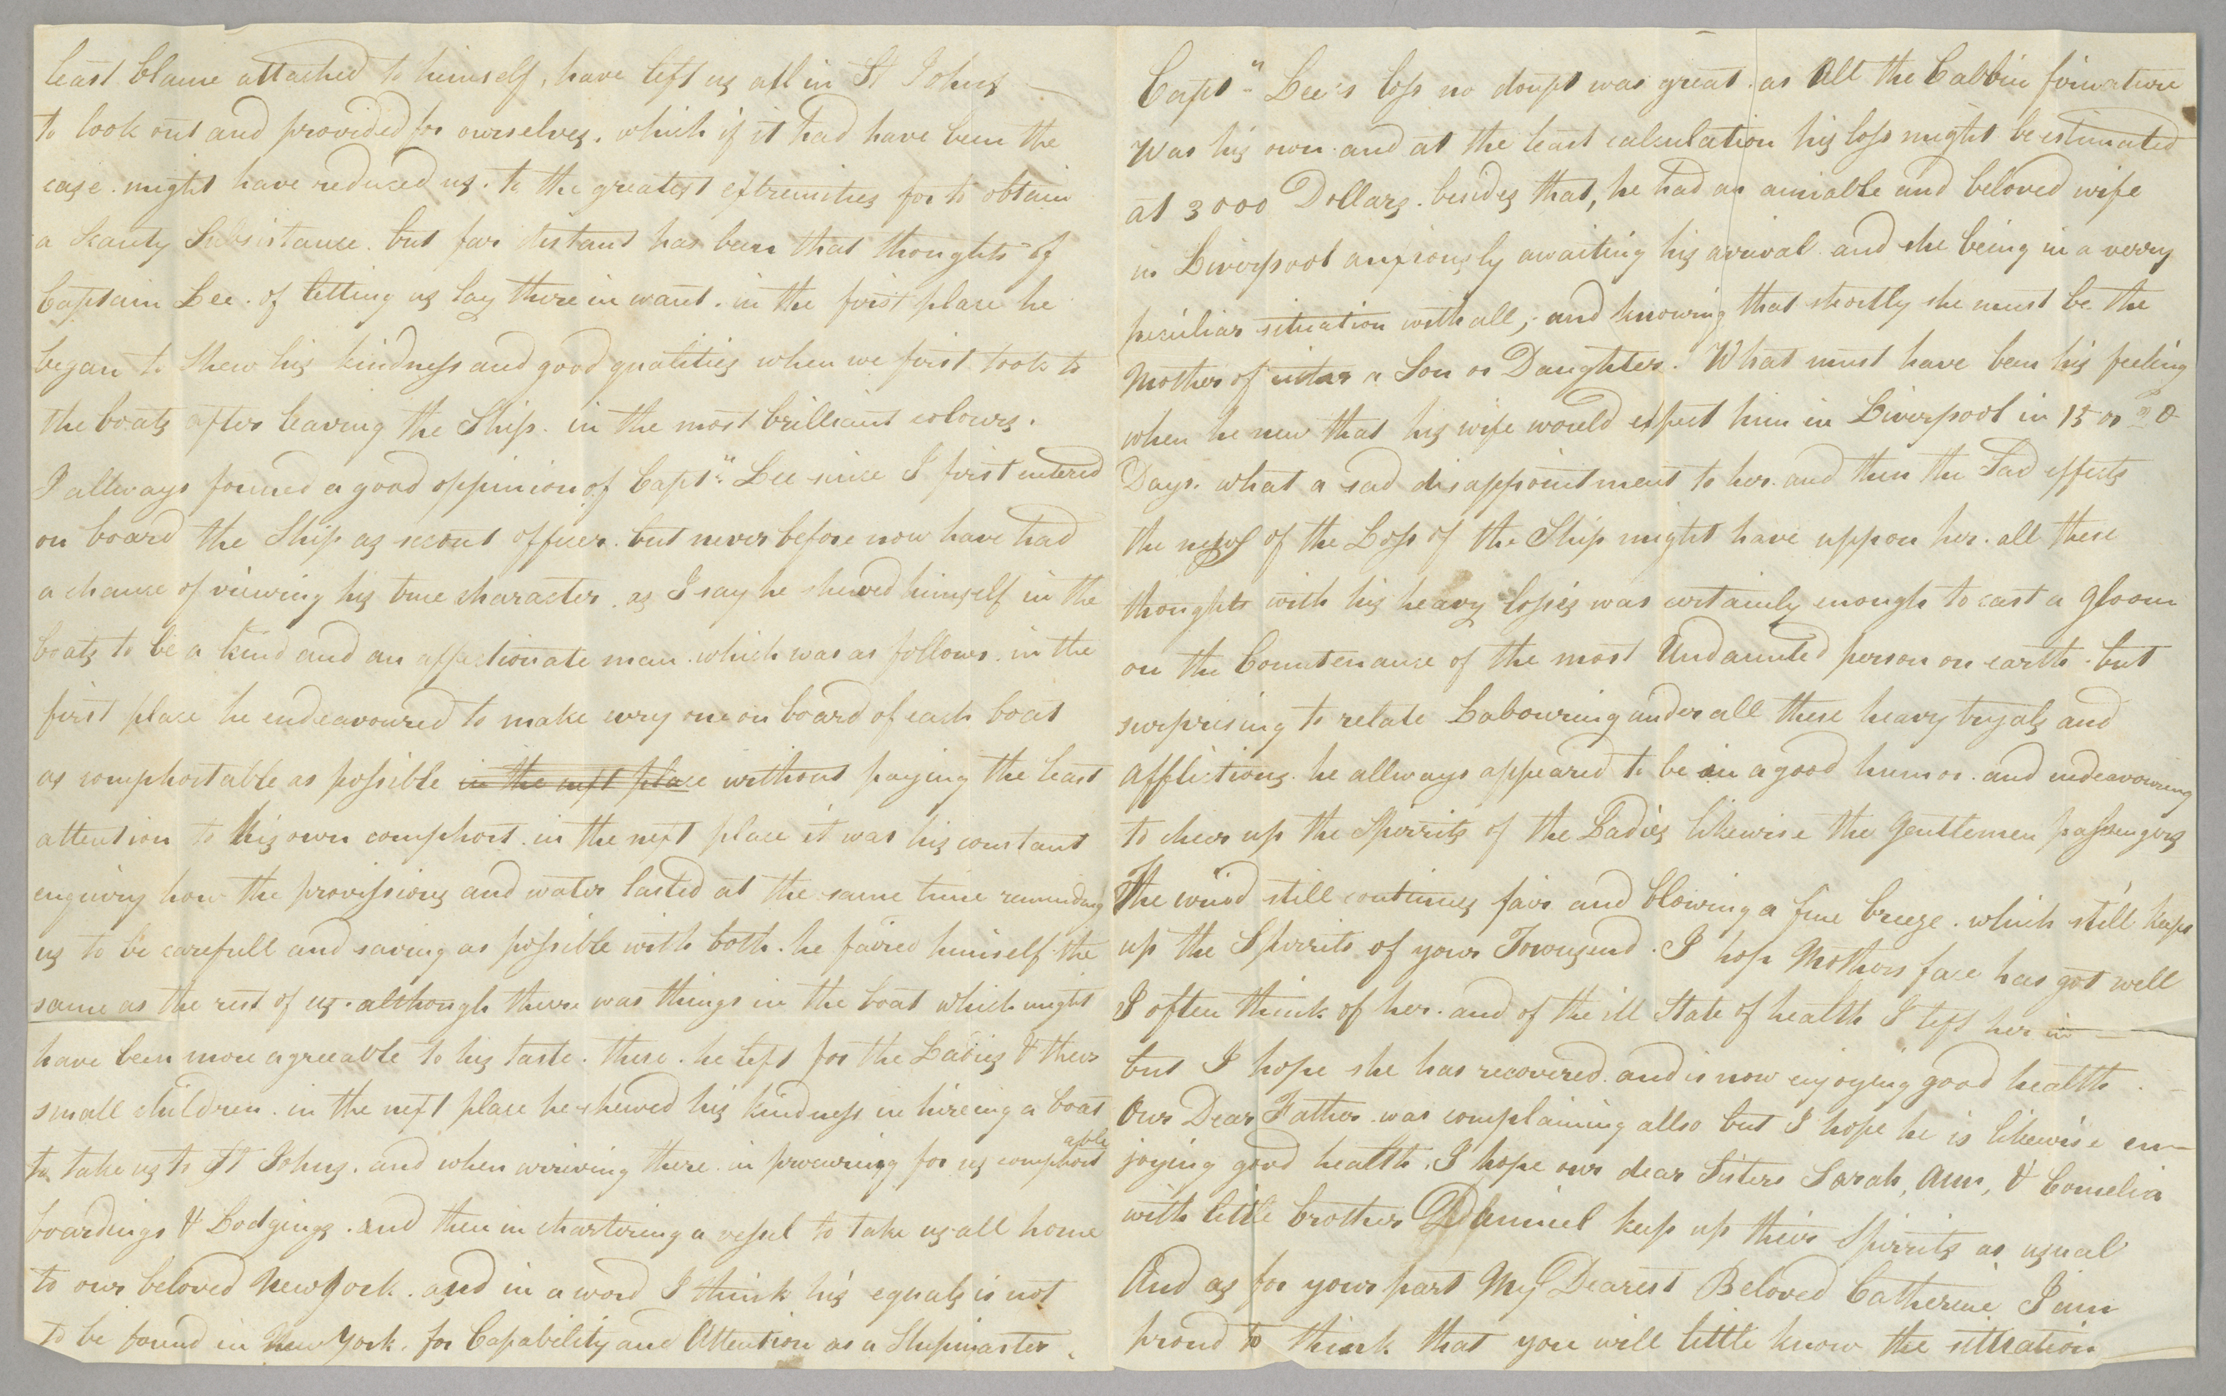 least blame attached to himself, have left us all in St Johns —
to look out and provided for ourselves. which if it had have been the
case. might have reduced us. to the greatest extremities for to obtain
a skanty Subsistance. but far distant has been that thoughts of
Captain Lee. of letting us lay there in want. in the first place he
began to shew his kindness and good qualities when we first took to
the boats after leaving the Ship. in the most brilliant colours.
I allways formed a good oppinion of Captn Lee since I first entered
on board the Ship as second officer. but never before now have had
a chance of viewing his true character. as I say he shewed himself in the
boats to be a kind and an affectionate man. which was as follows. in the
first place he endeavoured to make evry one on board of each boat
as comphortable as possible in the next place without paying the least
attention to his own comphort. in the next place it was his constant
enquiry how the provissions and water lasted at the same time reminding
us to be carefull and saving as possible with both. he faired himself the
same as the rest of us. although there was things in the boat which might
have been more agreeable to his taste. these. he left for the Ladies & their
small children. in the next place he shewed his kindness in hireing a boat
to take us to St Johns. and when arriving there. in procuring for us comphortable
boardings & Lodgings. and then in chartering a vessel to take us all home
to our beloved New York. and in a word I think his equals is not
to be found in New York. for Capability and Attention as a Shipmaster.
Captn Lee's loss no doupt was great. as All the Cabbin firnature
Was his own. and at the least calculation his loss might be estimated
at 3000 Dollars. besides that, he had an amiable and beloved wife
in Liverpool anxiously awaiting his arival. and she being in a verry
peculiar situation withall; and knowing that shortly she must be the
Mother of a Son or Daughter! What must have been his feeling
when he new that his wife would expect him in Liverpool in 15 or 20
Days. what a sad disappointment to her. and then the Sad effects
the news of the Loss of the Ship might have uppon her. all these
thoughts with his heavy losses was certainly enough to cast a gloom
on the Countenance of the most Undaunted person on earth. but
surprising to relate Labouring under all these heavy tryals and
Afflictions. he allways appeared to be in a good humor. and endeavouring
to chear up the Spirrits of the Ladies likewise the Gentlemen passengers
The wind still continues fair and blowing a fine breeze. which still keeps
up the Spirrits of your Townsend. I hope Mothers face has got well
I often think of her. and of the ill State of health I left her in —
but I hope she has recovered. and is now enjoying good health.
Our Dear Father was complaining allso but I hope he is likewise en-
joying good health. I hope our dear Sisters Sarah, Ann, & Cornelia
with little brother Daniel keep up their Spirrits as usual
And as for your part My Dearest Beloved Catherine I am
proud to think that you will little know the sittuation